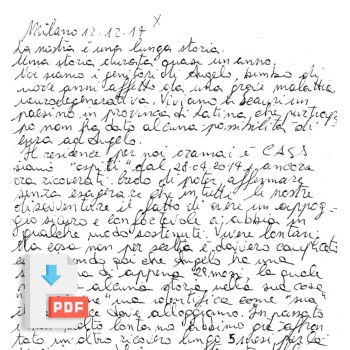 Milano 12.12.17
La nostra è una lunga storia.
Una storia durata quasi un anno.
Noi siamo i genitori di Angelo, bimbo di
nove anni affetto da una grave malattia
neurodegenerativa. Viviamo a in
paesino in provincia di Latina, che purtrop
po non ha dato alcuna possibilità di
cura ad Angelo.
Il residence per noi oramai è CASA
siamo "ospiti" dal 28.04.2017, ancora
ora ricoverati. Credo di poter affermare
senza esagerare che in tutte le nostre
disavventure il fatto di avere un appog-
gio sicuro e confortevole ci abbia in
qualche modo sostenuti. Vivere lontani
da casa non per scelta è davvero complicato
poi che Angelo ha una
di appena 22 mesi, la quale
alcuna storia nella sua casa
identifica come "sua"
dove alloggiamo. In passato
molto lontano abbiamo già affron
tato un altro ricovero lungo 5 mesi
PDF